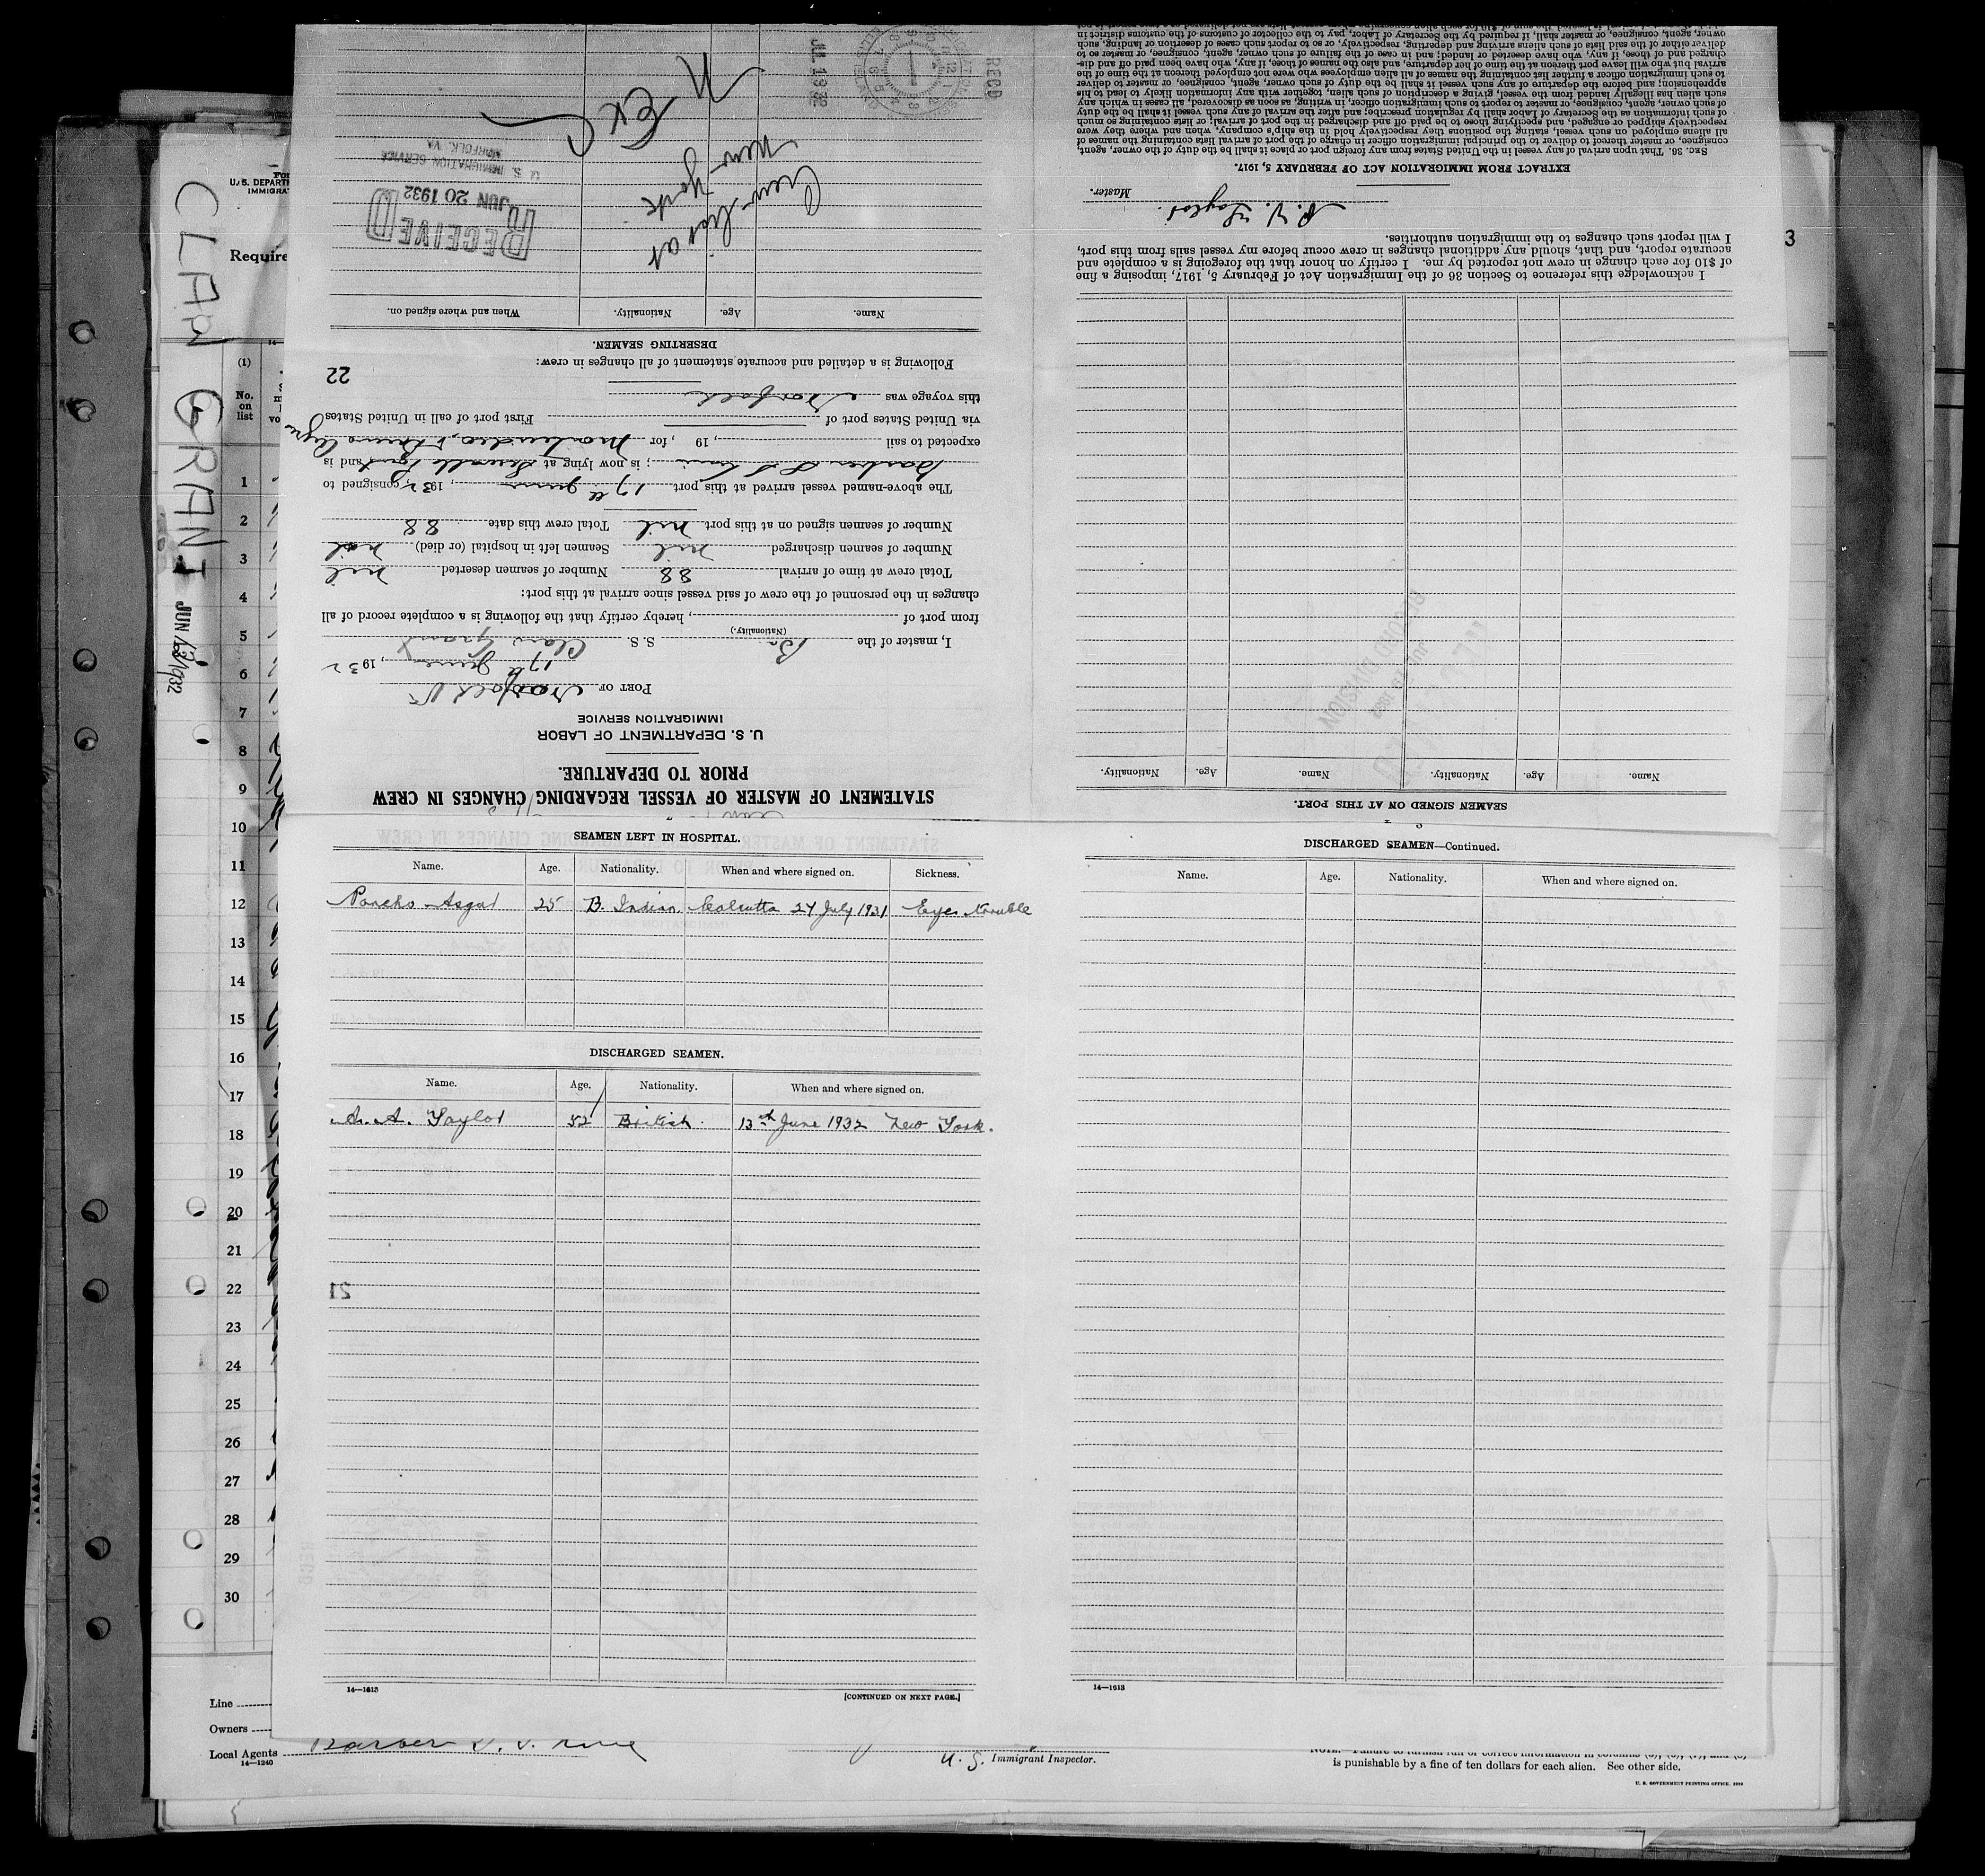 STATEMENT OF MASTER OF VESSEL REGARDING CHANGES IN CREW
PRIOR TO DEPARTURE.
U. S. DEPARTMENT OF LABOR
IMMIGRATION SERVICE
PORT OF Norfolk Va
17th June, 1932
I, master of the Br. S. S. Clan Grant
(Nationality.)
from port of , hereby certify that the following is a complete record of all
changes in the personnel of the crew of said vessel since arrival at this port:
Total crew at time of arrival 88 Number of seamen deserted nil
Number of seamen discharged nil Seamen left in hospital (or died) nil
Number of seamen signed on at this port nil Total crew this date 88
The above-named vessel arrived at this port 17th June, 1932, consigned to
Barber S S Line; is now lying at Sewalls Point and is
expected to sail , 19 , for Montevideo, & Buenos Ayres
via United States port of First port of call in United States
this voyage was Norfolk
22
Following is a detailed and accurate statement of all changes in crew:
DESERTING SEAMEN.
Name. Age. Nationality. When and where signed on.
Crew list at
New York
RECEIVED
JUN 20 1932
U. S. IMMIGRATION SERVICE
NORFOLK, VA.
REC'D
JUL 1 1932
SEAMEN SIGNED ON AT THIS PORT.
Name. Age. Nationality. Name. Age. Nationality.
RECORD DIVISION
I acknowledge this reference to Section 36 of the Immigration Act of February 5, 1917, imposing a fine
of $10 for each change in crew not reported by me. I certify on honor that the foregoing is a complete and
accurate report, and that, should any additional changes in crew occur before my vessel sails from this port,
I will report such changes to the immigration authorities.
Taylor.
Master.
EXTRACT FROM IMMIGRATION ACT OF FEBRUARY 5, 1917.
SEC. 36. That upon arrival of any vessel in the United States from any foreign port or place it shall be the duty of the owner, agent,
consignee, or master thereof to deliver to the principal immigration officer in charge of the port of arrival lists containing the names of
all aliens employed on such vessel, stating the positions they respectively hold in the ship's company, when and where they were
respectively shipped or engaged, and specifying those to be paid off and discharged in the port of arrival; or lists containing so much
of such information as the Secretary of Labor shall by regulation prescribe; and after the arrival of any such vessel it shall be the duty
of such owner, agent, consignee, or master to report to such immigration officer, in writing, as soon as discovered, all cases in which any
such alien has illegally landed from the vessel, giving a description of such alien, together with any information likely to lead to his
apprehension; and before the departure of any such vessel it shall be the duty of such owner, agent, consignee, or master to deliver
to such immigration officer a further list containing the names of all alien employees who were not employed thereon at the time of the
arrival but who will leave port thereon at the time of her departure, and also the names of those, if any, who have been paid off and dis-
charged and of those, if any, who have deserted or landed; and in case of the failure of such owner, agent, consignee, or master so to
deliver either of the said lists of such aliens arriving and departing, respectively, or so to report such cases of desertion or landing, such
owner, agent, consignee, or master shall, if required by the Secretary of Labor, pay to the collector of customs of the customs district in
SEAMEN LEFT IN HOSPITAL.
Name. Age. Nationality. When and where signed on. Sickness.
25 B. Indian. Calcutta 27 July 1931 Eyes trouble
DISCHARGED SEAMEN.
Name. Age. Nationality. When and where signed on.
A. Taylor 52 British. 13th June 1932 New York.
21
14—1613
[CONTINUED ON NEXT PAGE.]
DISCHARGED SEAMEN—Continued.
Name. Age. Nationality. When and where signed on.
14—1613
CLAN GRANT
U. S. DEPART
IMMIGRA
Require
3
(1)
No.
on
list
1
2
3
4
5
6
7
8
9
10
11
12
13
14
15
16
17
18
19
20
21
22
23
24
25
26
27
28
29
30
Line
Owners
Local Agents Barber S. S. Line
14—1240
U. S. Immigrant Inspector.
is punishable by a fine of ten dollars for each alien. See other side.